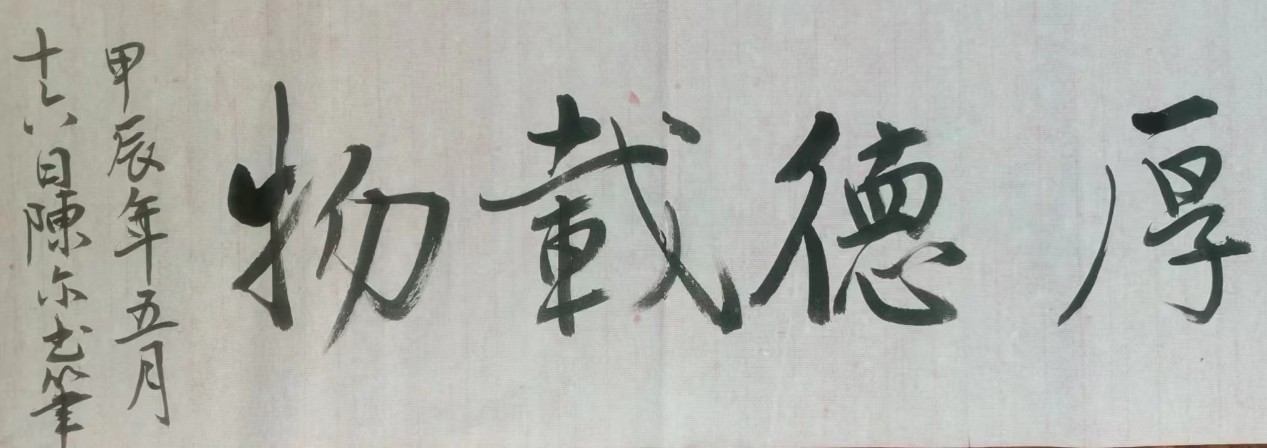 厚德載物
甲辰年五月
十六日陳尔书筆